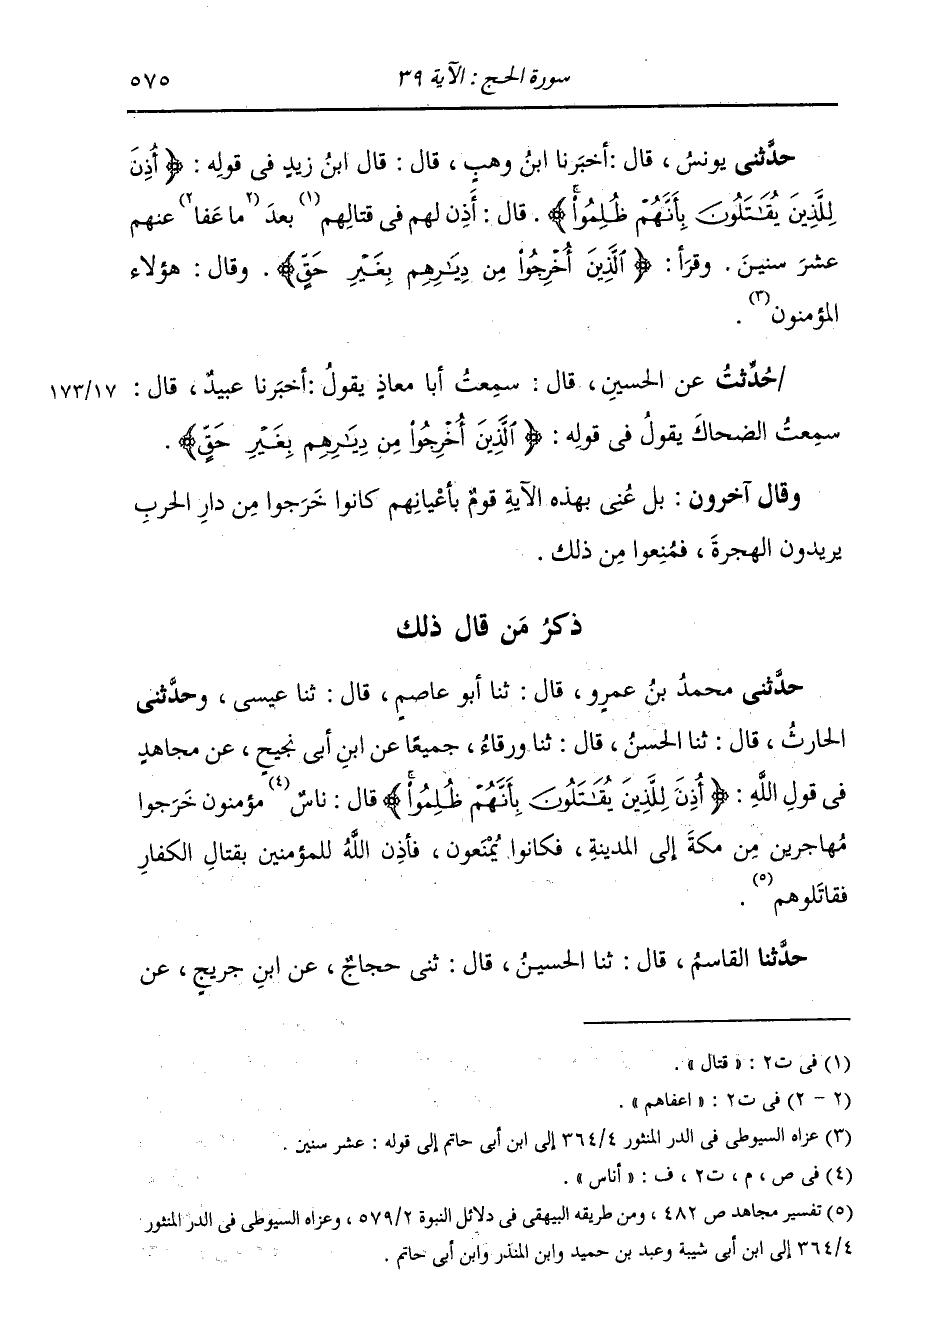 سورة الحج : الآية ٣٩
٥٧٥
حدَّثنى يونسُ ، قال : أخبَرنا ابنُ وهبٍ ، قال : قال ابنُ زيدٍ فى قولِه : ﴿ أُذِنَ
لِلَّذِينَ يُقَٰتَلُونَ بِأَنَّهُمْ ظُلِمُواْ ﴾ . قال : أَذِن لهم فى قتالِهم(١) بعدَ (٢ ما عَفا٢) عنهم
عشرَ سنينَ . وقرَأ : ﴿ ٱلَّذِينَ أُخْرِجُواْ مِن دِيَٰرِهِم بِغَيْرِ حَقٍّ ﴾ . وقال : هؤلاء
المؤمنون(٣) .
/حُدِّثتُ عن الحسينِ ، قال : سمِعتُ أبا معاذٍ يقولُ : أخبَرنا عبيدٌ ، قال : ١٧٣/١٧
سمِعتُ الضحاكَ يقولُ فى قولِه : ﴿ ٱلَّذِينَ أُخْرِجُواْ مِن دِيَٰرِهِم بِغَيْرِ حَقٍّ ﴾ .
وقال آخرون : بل عُنِى بهذه الآيةِ قومٌ بأعْيانِهم كانوا خَرَجوا مِن دارِ الحربِ
يريدون الهجرةَ ، فمُنِعوا مِن ذلك .
ذكرُ مَن قال ذلك
حدَّثنى محمدُ بنُ عمرٍو ، قال : ثنا أبو عاصمٍ ، قال : ثنا عيسى ، وحدَّثنى
الحارثُ ، قال : ثنا الحسنُ ، قال : ثنا ورقاءُ ، جميعًا عن ابنِ أبى نجيحٍ ، عن مجاهدٍ
فى قولِ اللَّهِ : ﴿ أُذِنَ لِلَّذِينَ يُقَٰتَلُونَ بِأَنَّهُمْ ظُلِمُواْ ﴾ قال : ناسٌ(٤) مؤمنون خَرَجوا
مُهاجرين مِن مكةَ إلى المدينةِ ، فكانوا يُمْنَعون ، فأذِن اللَّهُ للمؤمنين بقتالِ الكفارِ
فقاتَلوهم(٥) .
حدَّثنا القاسمُ ، قال : ثنا الحسينُ ، قال : ثنى حجاجٌ ، عن ابنِ جريجٍ ، عن
(١) فى ت٢ : « قتال » .
(٢ - ٢) فى ت٢ : « اعفاهم » .
(٣) عزاه السيوطى فى الدر المنثور ٣٦٤/٤ إلى ابن أبى حاتم إلى قوله : عشر سنين .
(٤) فى ص ، م ، ت٢ ، ف : « أناس » .
(٥) تفسير مجاهد ص ٤٨٢ ، ومن طريقه البيهقى فى دلائل النبوة ٥٧٩/٢ ، وعزاه السيوطى فى الدر المنثور
٣٦٤/٤ إلى ابن أبى شيبة وعبد بن حميد وابن المنذر وابن أبى حاتم .